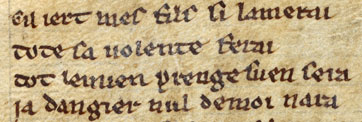 Cil iert mes filz si lamerai
tote sa uolente ferai
tot lemien prenge suen sera
ja dangier nul demoi nara